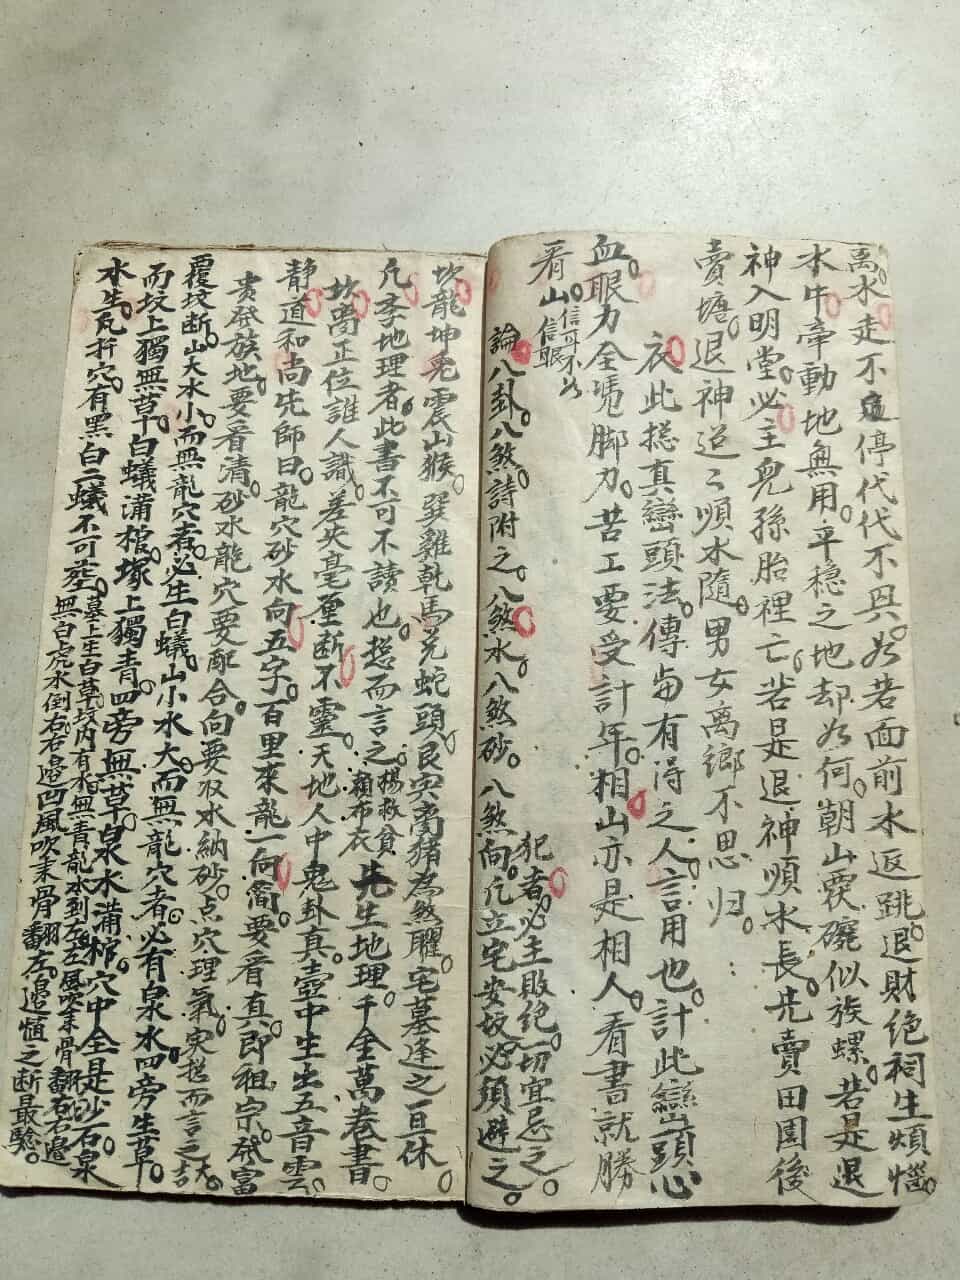 离水走不停代代不兴如若面前水返跳退財绝祠生煩惱
水牛牵動地無用平稳之地却如何朝山覆礲似族螺若是退
神入明堂必主兒孫胎裡亡若是退神順水長先賣田園後
賣塘退神迢々順水隨男女离鄉不思归
衣此搃真巒頭法傳与有得之人言用也計此巒頭心
血眼力全凭脚力苦工要受計年相山亦是相人看書就勝
看山信耳不如信眼
論八卦八煞詩附之八煞水八煞砂八煞向凡立宅安坟必須避之
犯者必主敗绝一切宜忌之
坎龍坤兎震山猴巽雞乾馬兑蛇頭艮寅离猪為煞曜宅墓逢之一旦休
凡李地理者此書不可不讀也搃而言之楊救贫賴布衣先生地理千金萬卷書
坎离正位誰人識差失毫厘断不靈天地人中鬼卦真壺中生出五音雲
静道和尚先師曰龍穴砂水向五字百里來龍一向裔要看真即祖宗發富
贵發族地要看清砂水龍穴要配合向要収水納砂点穴理氣实搃而言之大吉
覆坟断山大水小而無龍穴者必生白蟻山小水大而無龍穴者必有泉水四旁生草
而坟上獨無草白蟻满棺塚上獨青四旁無草泉水满棺穴中全是沙石泉
水生瓦扦穴有黑白二蟻不可葬墓上生白草坟内有水無青龍水到左左風吹來骨翻右右邊
無白虎水倒右右邊凹風吹來骨翻左左邊愼之断最驗